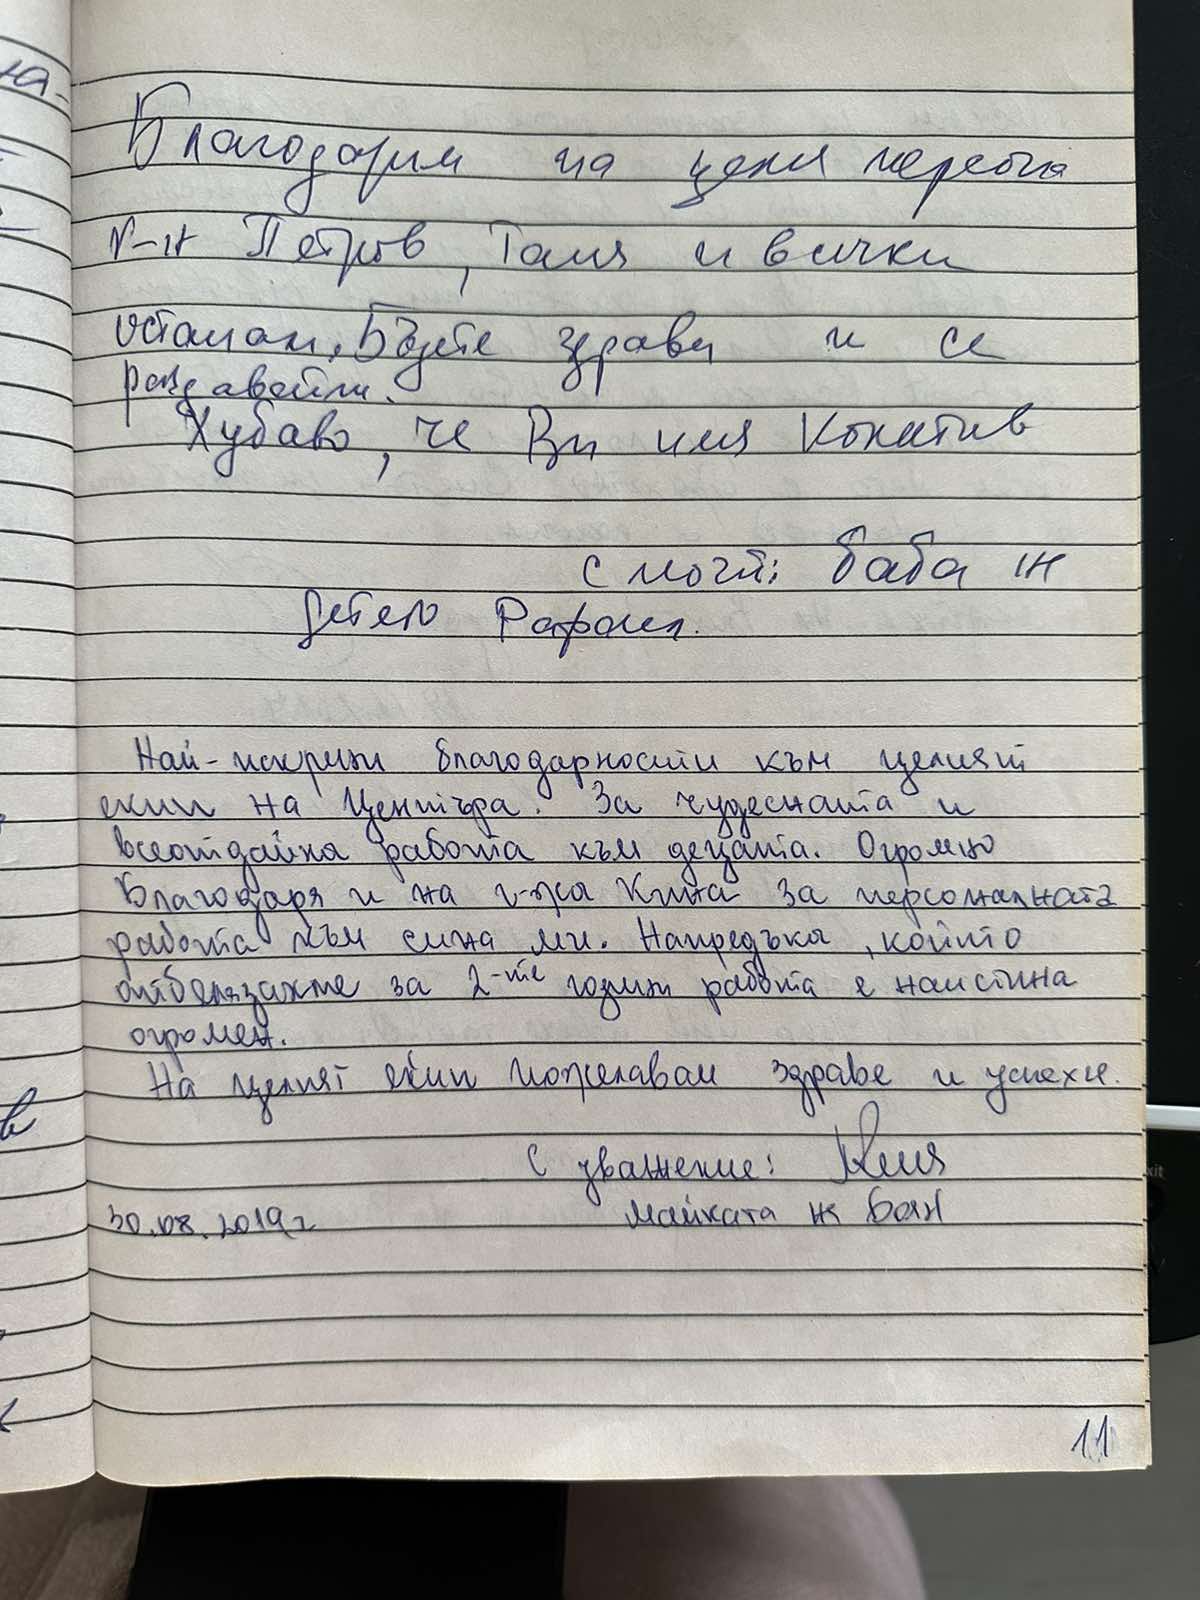 Благодарим на целия персона
г-н Петров, Таня и всички
останали. Бъдете здрави и се
раздавайте.
Хубаво, че Ви има Конатив
с почит: баба на
детето Рафаил.
Най-искрени благодарности към целият
екип на Центъра. За чудесната и
всеотдайна работа към децата. Огромно
благодаря и на г-жа Кина за персоналната
работа към сина ми. Напредъка, който
отбелязахме за 2-те години работа е наистина
огромен.
На целият екип пожелавам здраве и успехи.
С уважение:
майката на Боян
30.08.2019г
11